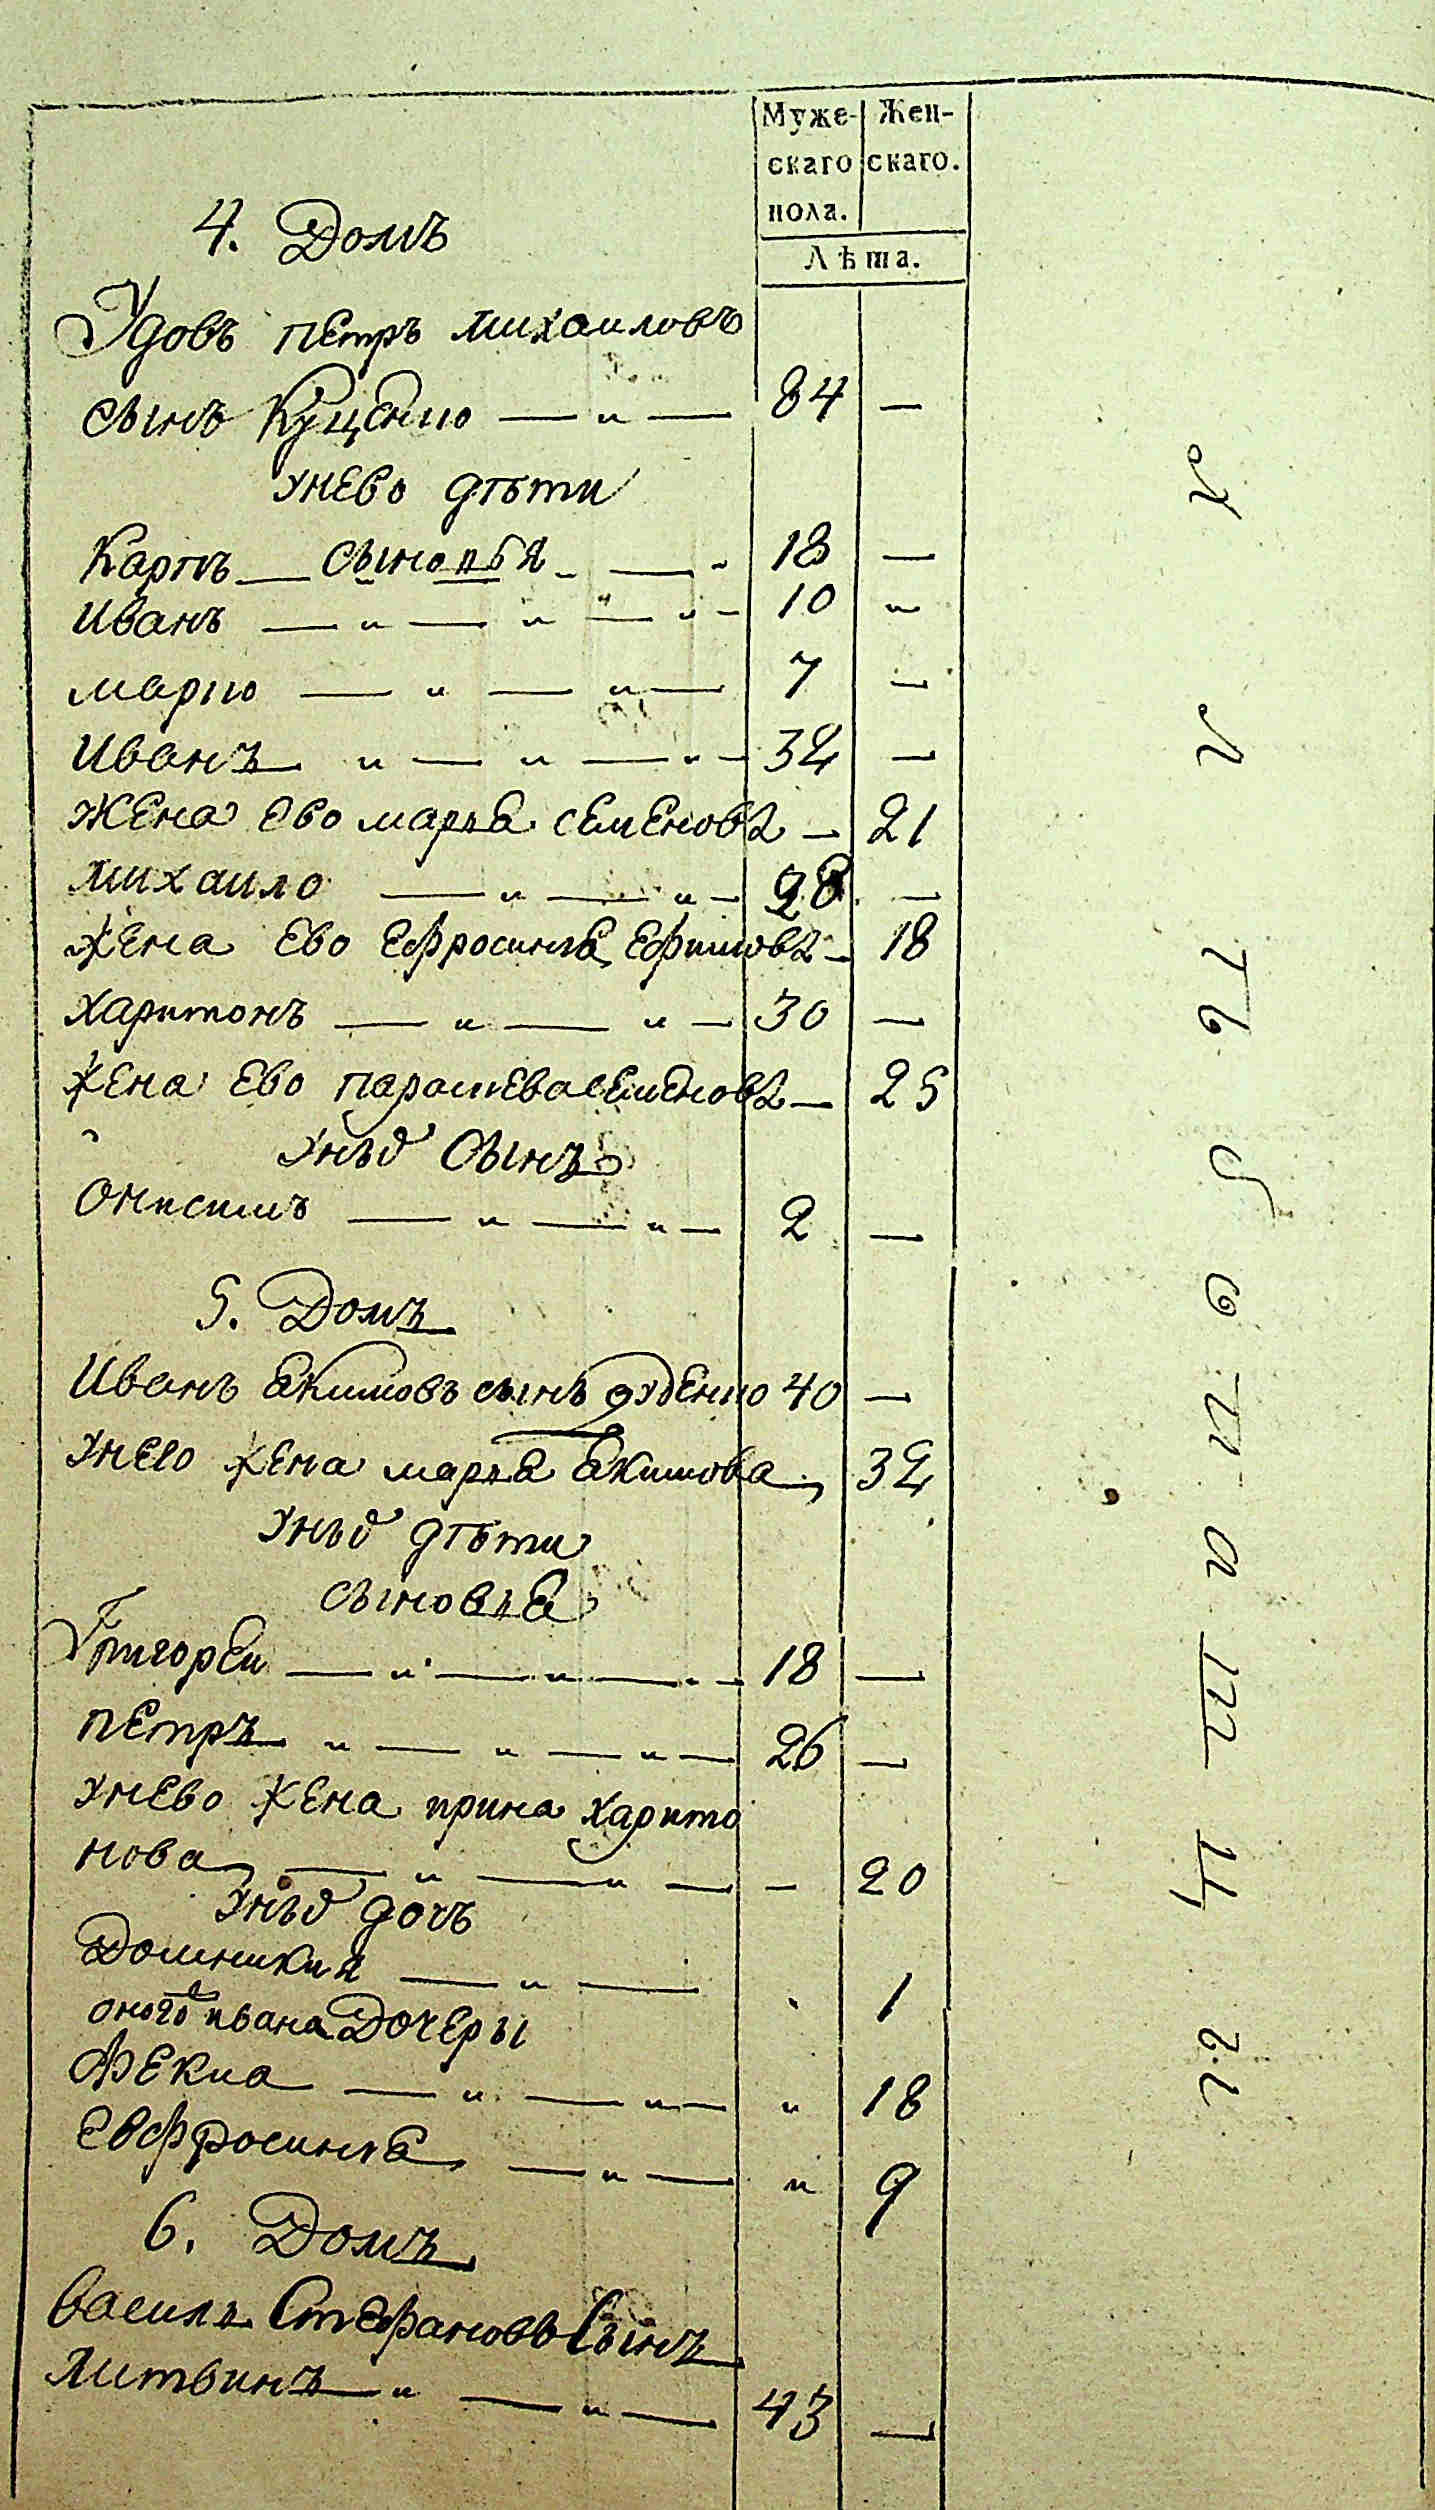 Муже- Жен-
скаго скаго.
пола.
Лѣта.
4. Домъ
Удовъ петръ михаиловъ
сынъ Куценко — „ — 84 —
унево дѣти
Карпъ — сыновья — 18 —
Иванъ — „ — „ — „ — 10 „
марко — „ — „ — 7 —
Иванъ „ — „ — „ — 32 —
жена ево марья семенова — 21
михаило — „ — „ — 28 —
жена ево ефросинья ефимова — 18
харитонъ — „ — „ — 30 —
жена ево параскева семенова — 25
унъхъ Сынъ
Онисимъ — „ — „ — 2 —
5. Домъ
Иванъ Екимовъ сынъ дуденко 40 —
унего жена марья Екимова, 32
унъхъ дѣти
сыновья
Григореи — „ — „ — 18 —
петръ „ — „ — „ — 26 —
унево жена ирина харито
нова, — „ — „ — — 20
унъхъ дочь
Домникия — „ — 1
оного ивана Дочеры
Фекла — „ — „ — „ 18
Евфросинья — „ — „ 9
6. Домъ
василь Стефановъ Сынъ
литвинъ — „ — „ — 43 —